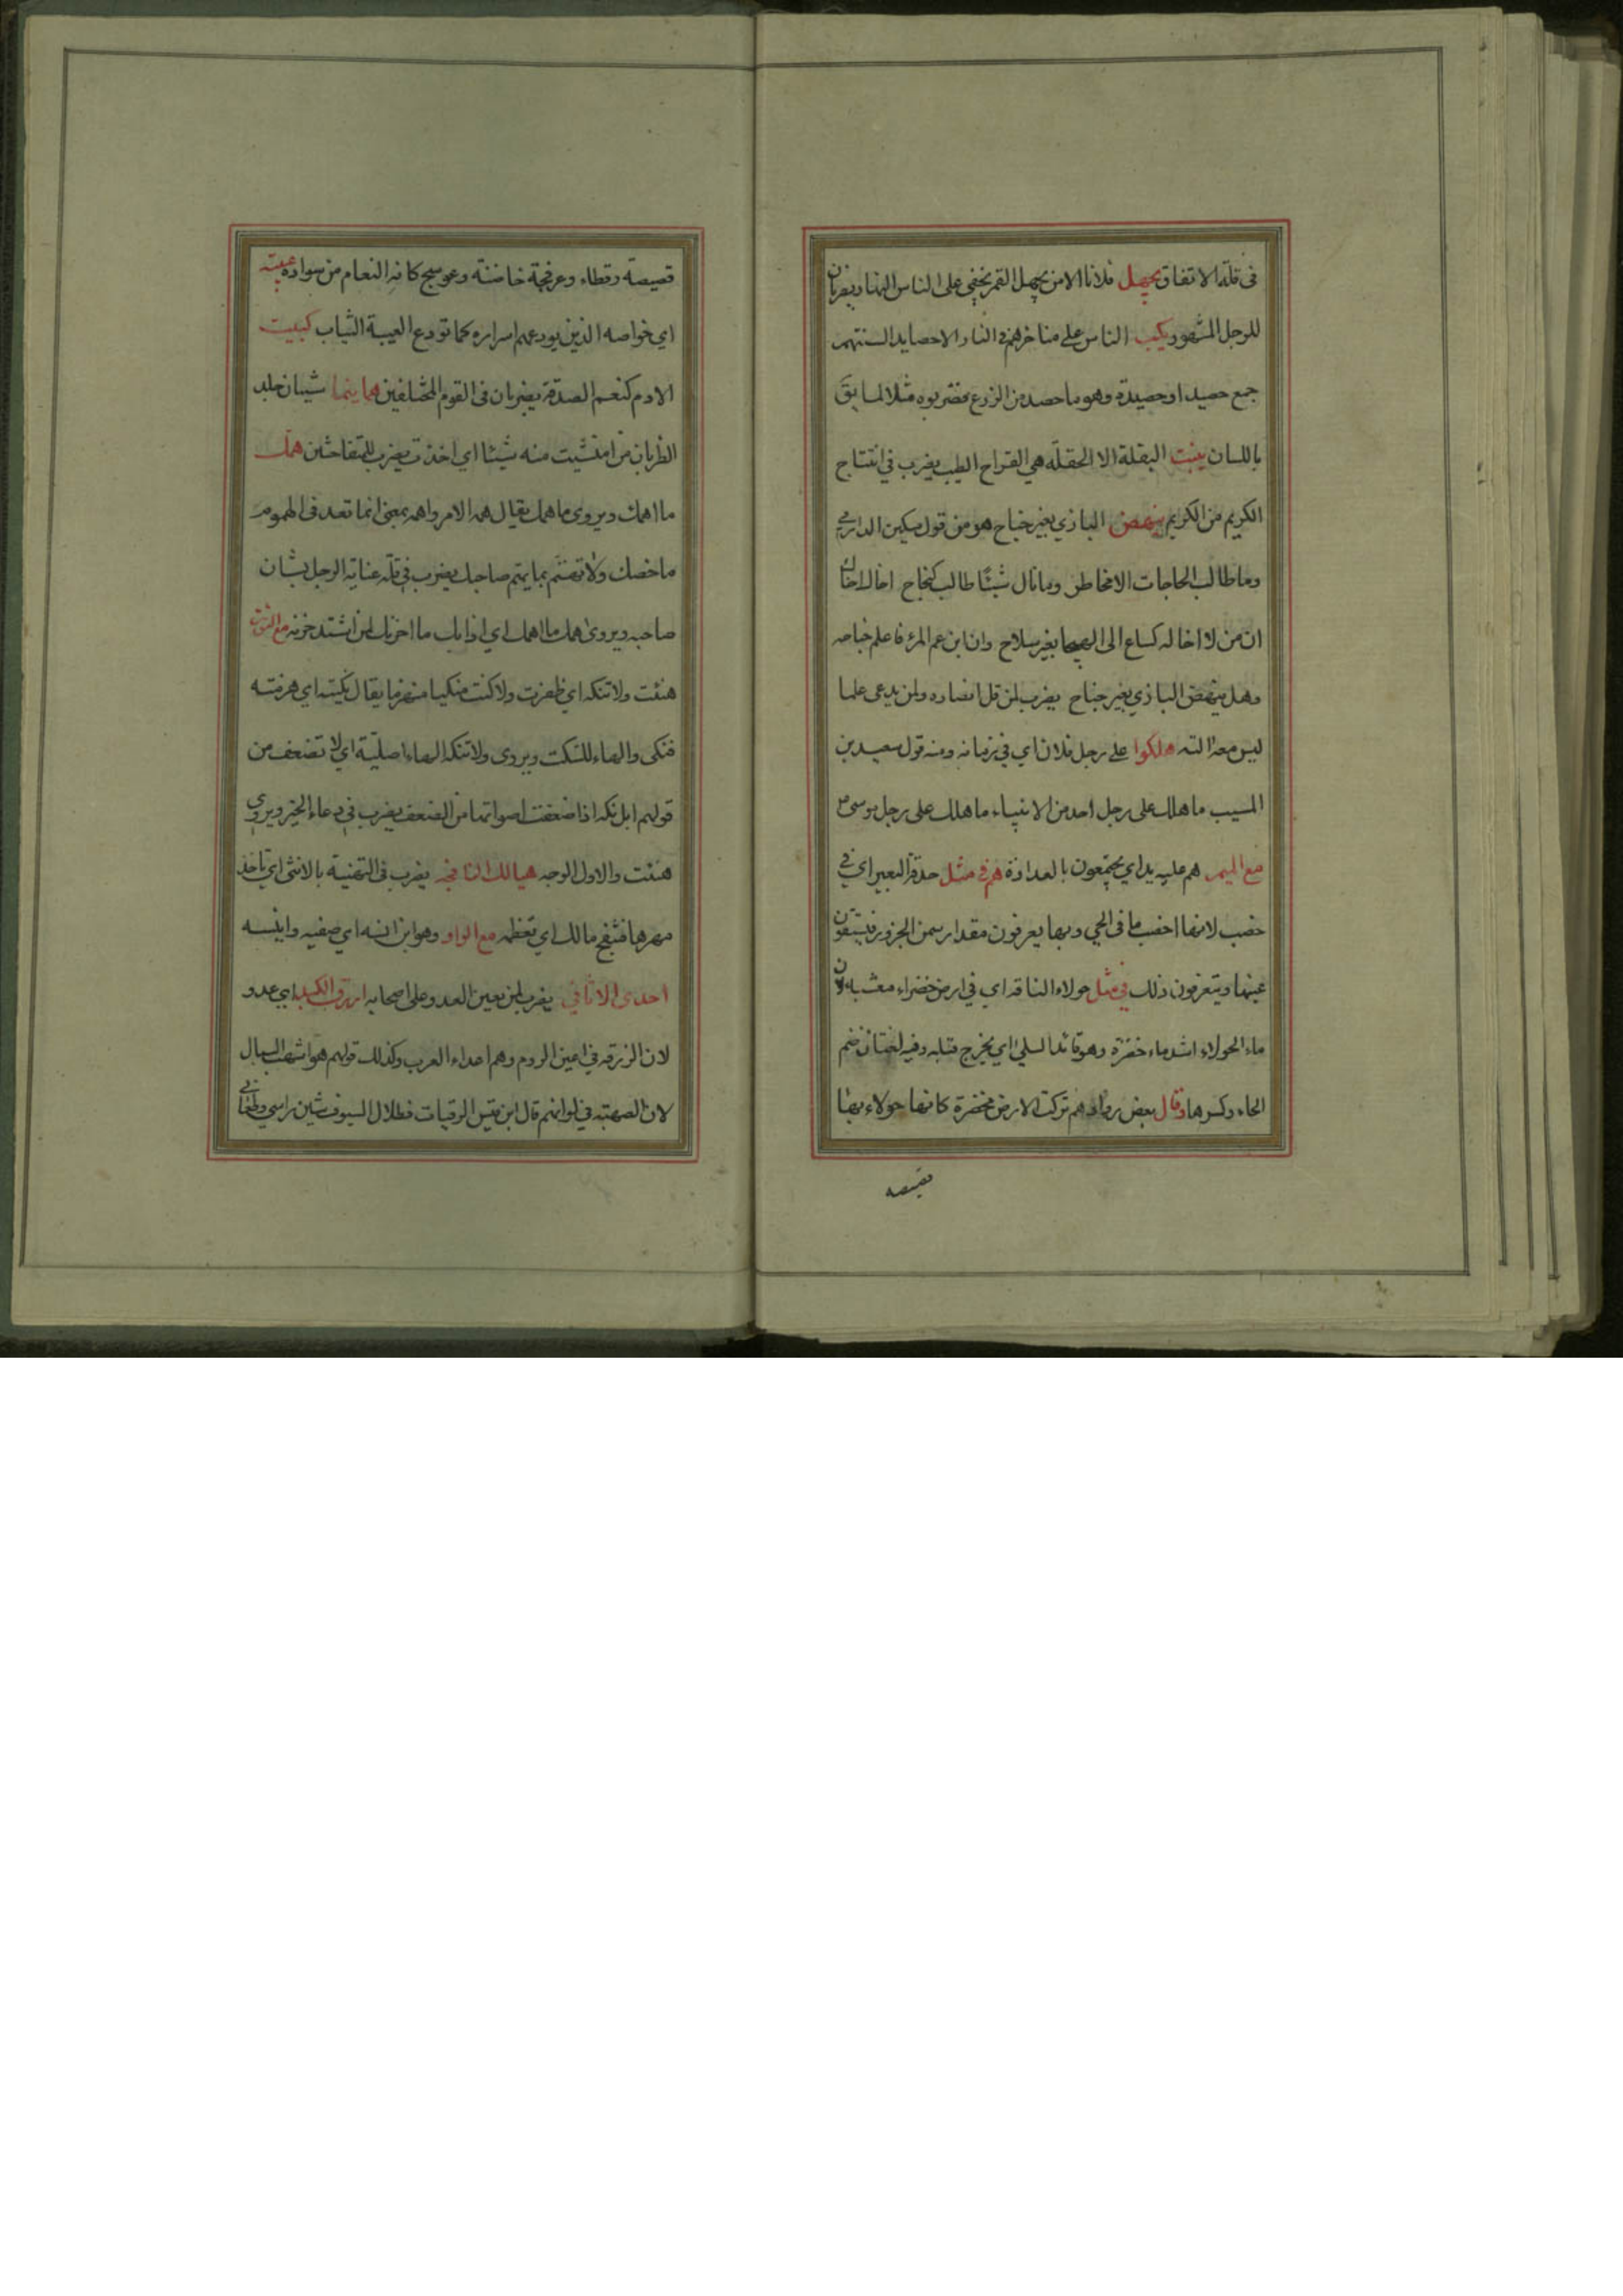 في قلة الاتفاق يجهل فلانا الا من يجهل القمر يخفى على الناس النهار يضربان
للرجل المشهور يكب الناس على مناخرهم في النار الا حصايد السنتهم
جمع حصيد او حصيدة وهو ما حصد من الزرع فضربوه مثلا لما يقَ
باللسان ينبت البقلة الا الحقلة هي القراح الطيب يضرب في انتتاج
الكريم من الكريم ينهض البازي بغير جناح هو من قول مسكين الدارمي
وما طالب الحاجات الا مخاطر وما نال شيئا طالب كنجاح اخاك اخاك
ان من لا اخا له كساع الى الهيجا بغير سلاح وان ابن عم المرء فاعلم جناحه
وهل ينهض البازي بغير جناح يضرب لمن قل انصاره ولمن يدعى علما
ليس معه الته هلكوا على رجل فلان اي في زمانه ومنه قول سعيد بن
المسيب ما هلك على رجل احد من الانبياء ما هلك على رجل موسى ع
مع الميم هم عليه يد اي يجتمعون بالعداوة هم في مثل حدقة البعير اي في
خصب لانها اخصب ما في الحي وبها يعرفون مقدار سمن الجزور فيبتقون
عينها ويتعرفون ذلك في مثل حولاء الناقة اي في ارض خضراء معشبة لان
ماء الحولاء اشد ماء خضرة وهو قائد السلى اي يخرج قبله وفيه لغتان ضم
الحاء وكسرها وقال بعض روادهم تركت الارض مخضرة كانها حولاء بها
قصيصة
قصيصة رقطاء وعرفجة خاضبة وعوسج كانه النعام من سواده عيبته
اي خواصه الذين يودعهم اسراره كما تودع العيبة الثياب كبيت
الادم كنعم الصدقة يضربان في القوم المختلفين هما يتماشيان جلد
الظربان من امتشيت منه شيئا اي اخذت يضرب للمتفاحشين همك
ما اهمك ويروى ما همك يقال همه الامر واهمه بمعنى انما تعد في الهموم
ما خصك ولا تهتم بما يهتم صاحبك يضرب في قلة عناية الرجل بشان
صاحبه ويروى همك ما اهمك اي اذابك ما احزنك لمن اشتد حزنه مع النون
هنئت ولا تنكه اي ظفرت ولا كنت منكيا منهزما يقال نكيته اي هزمته
فنكى والهاء للسكت ويروى ولا تنكه الهاء اصلية اي لا تضعف من
قولهم ابل نكه اذا ضعفت اصواتها من الضعف يضرب في دعاء الخير ويروى
هنئت والاول الوجه هنيا لك النافجه يضرب في التهنية بالانثى اي تاخذ
مهرها فتنفج مالك اي تعظمه مع الواو وهو ابن انسه اي صفيه وانيسه
احدى الاثافي يضرب لمن يعين العدو على اصحابه ازرق الكبد اي عدو
لان الزرقه في اعين الروم وهم اعداء العرب وكذلك قولهم هو اشهب السبال
لان الصهبة في الوانهم قال ابن قيس الرقيات فظلال السيوف شين راسي وطعاني